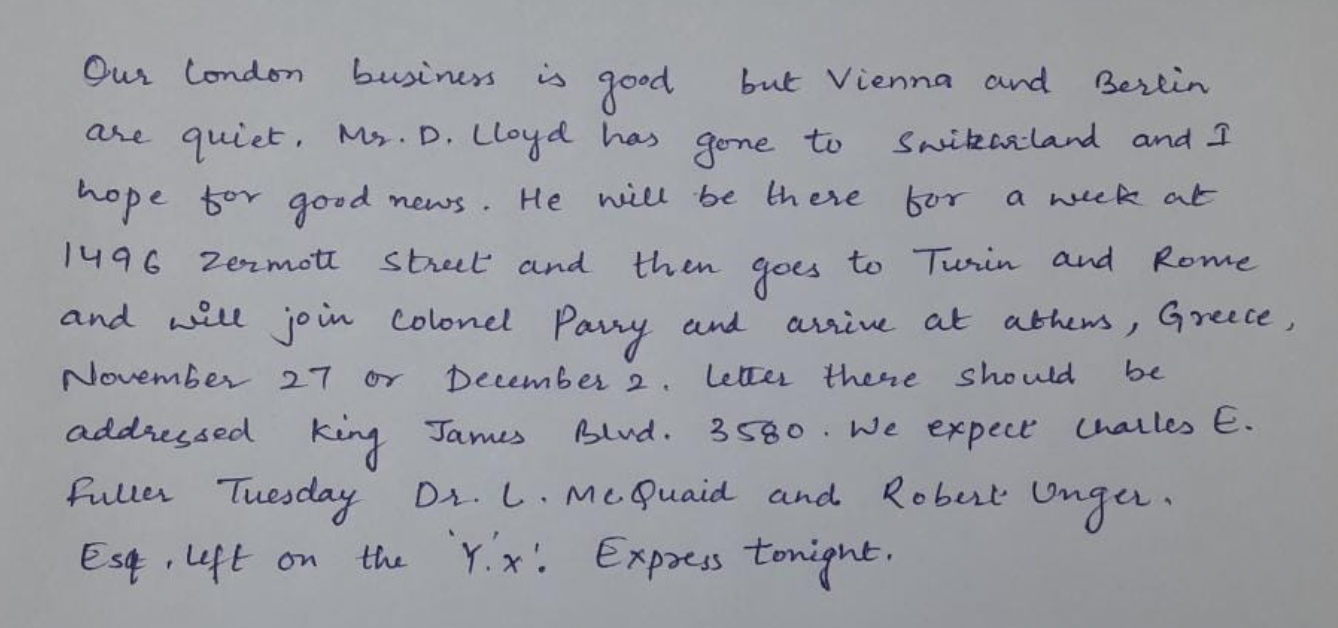 Our London business is good but Vienna and Berlin
are quiet. Mr. D. Lloyd has gone to Switzerland and I
hope for good news. He will be there for a week at
1496 Zermott Street and then goes to Turin and Rome
and will join Colonel Parry and arrive at athens, Greece,
November 27 or December 2. Letter there should be
addressed King James Blvd. 3580. We expect Charles E.
Fuller Tuesday Dr. L. McQuaid and Robert Unger.
Esq, left on the 'Y.'x'. Express tonight.